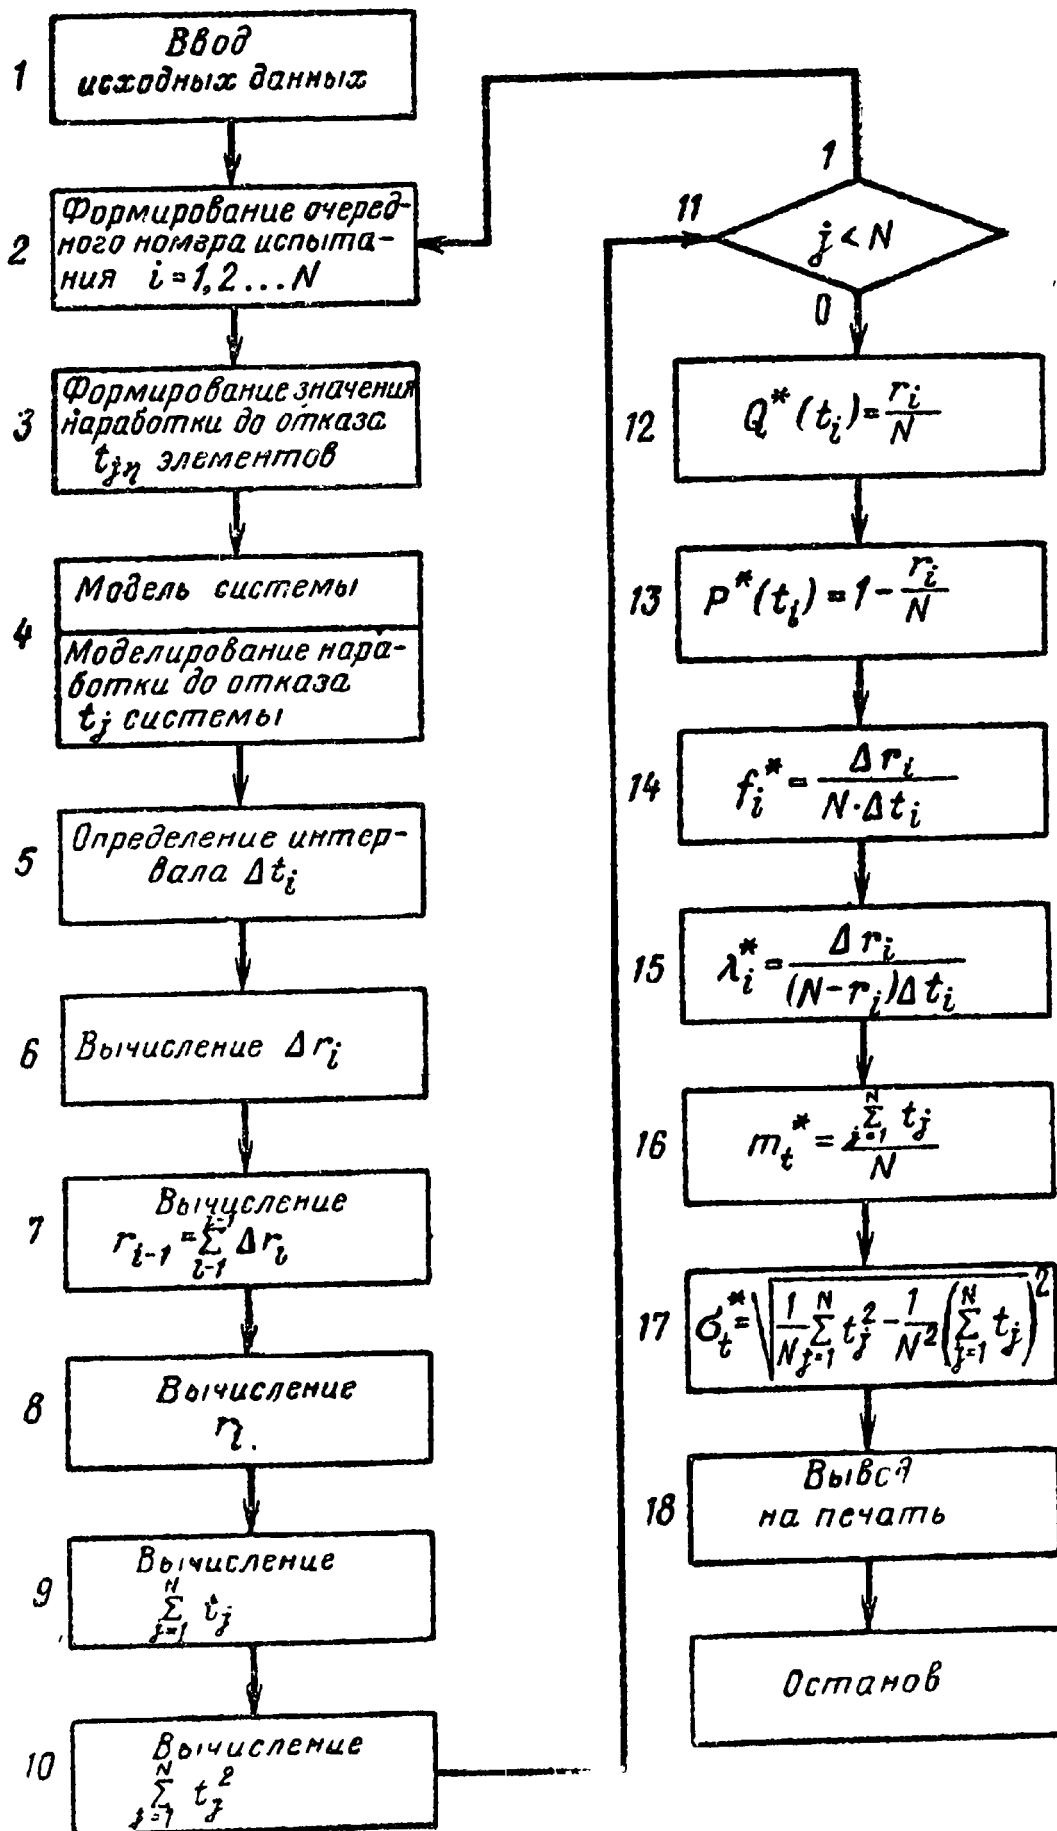 1
Ввод
исходных данных
2
Формирование очеред-
ного номера испыта-
ния i = 1, 2 ... N
3
Формирование значения
наработки до отказа
t_{jη} элементов
4
Модель системы
Моделирование нара-
ботки до отказа
t_j системы
5
Определение интер-
вала Δt_i
6
Вычисление Δr_i
7
Вычисление
r_{i-1} = \sum_{i-1}^{i-1} Δr_i
8
Вычисление
r_i.
9
Вычисление
\sum_{j=1}^{N} t_j
10
Вычисление
\sum_{j=1}^{N} t_j^2
11
1
j < N
0
12
Q^*(t_i) = \frac{r_i}{N}
13
P^*(t_i) = 1 - \frac{r_i}{N}
14
f_i^* = \frac{Δr_i}{N·Δt_i}
15
λ_i^* = \frac{Δr_i}{(N-r_i)Δt_i}
16
m_t^* = \frac{\sum_{j=1}^{N} t_j}{N}
17
σ_t^* = \sqrt{\frac{1}{N}\sum_{j=1}^{N} t_j^2 - \frac{1}{N^2}(\sum_{j=1}^{N} t_j)^2}
18
Вывод
на печать
Останов